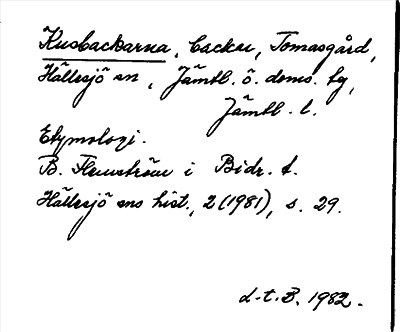 Kusbackarna, backar, Tomasgård,
Hällesjö sn, Jämtl. ö. doms. tg,
Jämtl. l.
Etymologi.
B. Flemström i Bidr. t.
Hällesjö sns hist., 2 (1981), s. 29.
d. t. B. 1982.